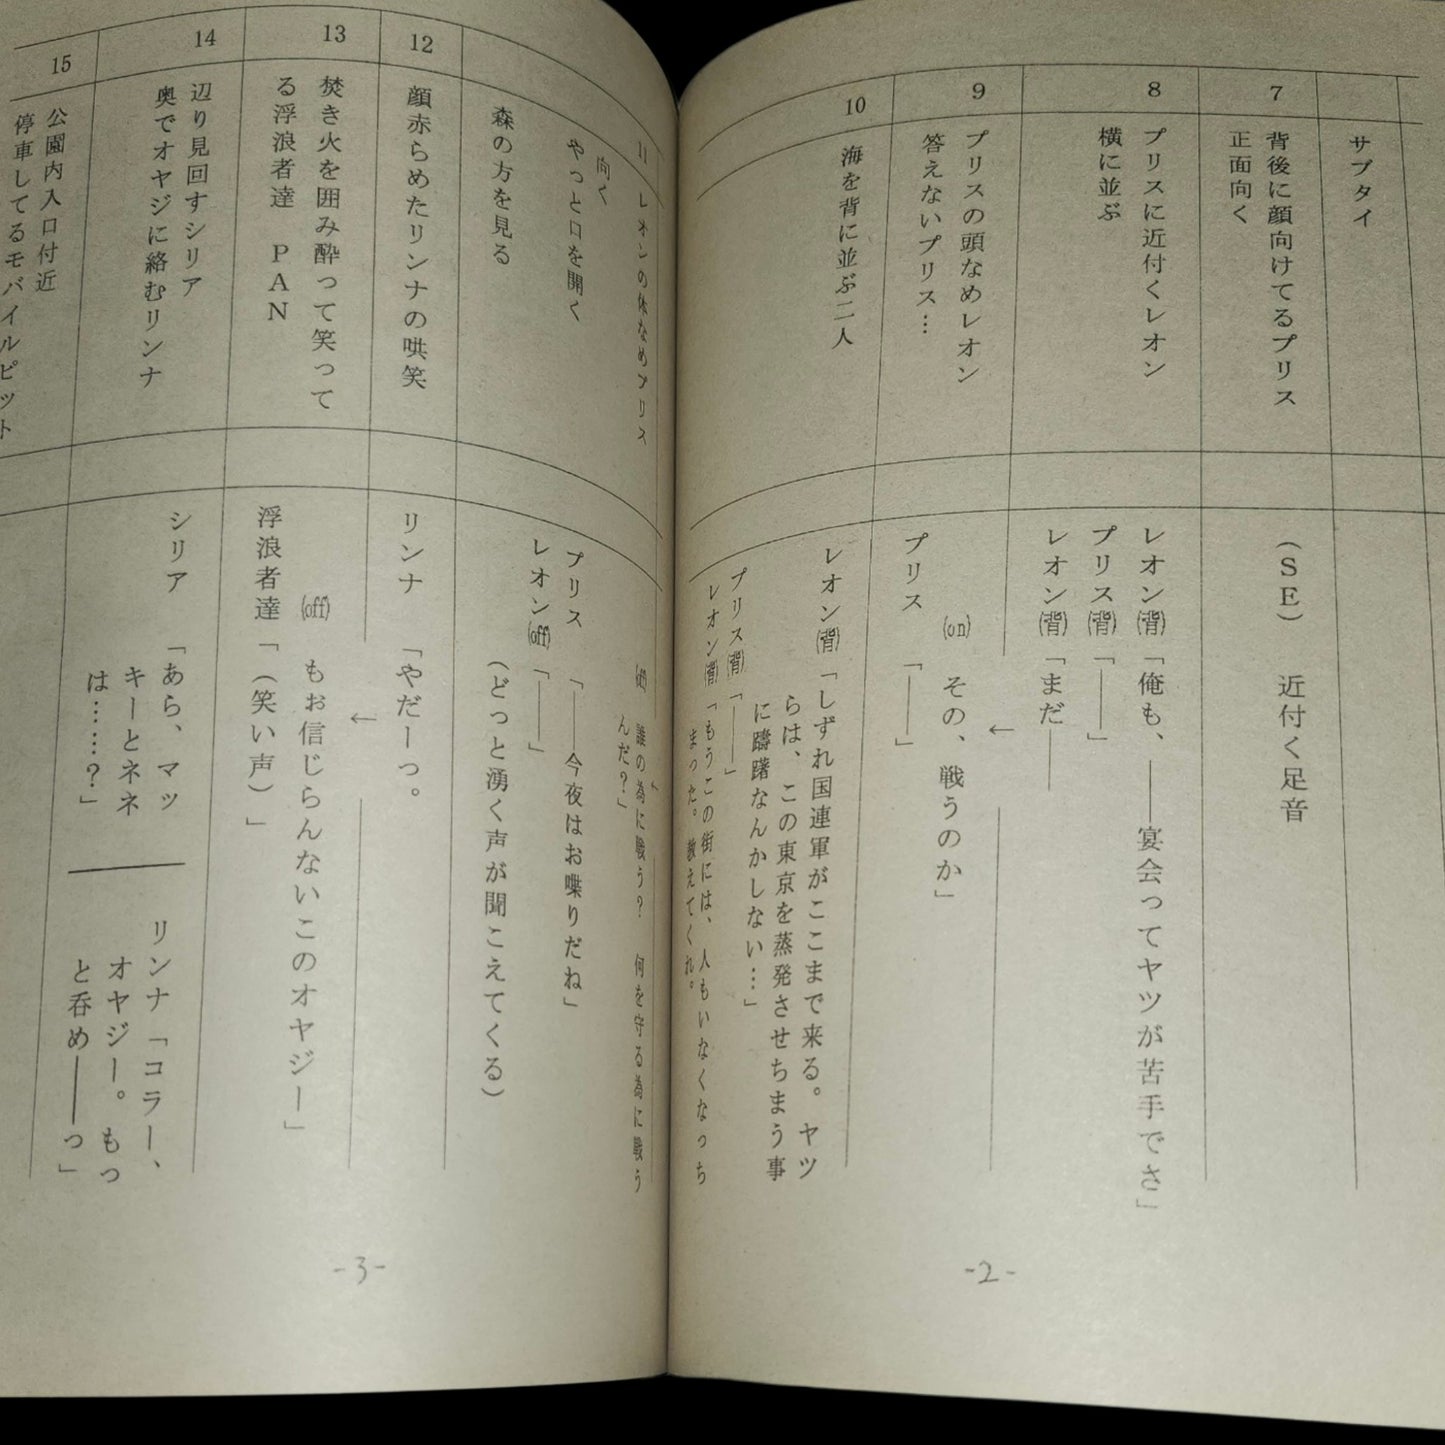 サブタイ
7
背後に顔向けてるプリス
正面向く
(SE) 近付く足音
8
プリスに近付くレオン
横に並ぶ
レオン(背)「俺も、――宴会ってヤツが苦手でさ」
プリス(背)「――」
レオン(背)「まだ――
←
9
プリスの頭なめレオン
答えないプリス…
(on) その、戦うのか」
プリス 「――」
10
海を背に並ぶ二人
レオン(背)「しずれ国連軍がここまで来る。ヤツ
らは、この東京を蒸発させちまう事
に躊躇なんかしない…」
プリス(背)「――」
レオン(背)「もうこの街には、人もいなくなっち
まった。教えてくれ。
-2-
11
レオンの体なめプリス
向く
やっと口を開く
森の方を見る
(off) 誰の為に戦う? 何を守る為に戦う
んだ?」
プリス 「――今夜はお喋りだね」
レオン(off)「――」
(どっと湧く声が聞こえてくる)
12
顔赤らめたリンナの哄笑
リンナ 「やだーっ。
←
13
焚き火を囲み酔って笑って
る浮浪者達 PAN
(off) もぉ信じらんないこのオヤジー」
浮浪者達「(笑い声)」
14
辺り見回すシリア
奥でオヤジに絡むリンナ
シリア 「あら、マッ
キーとネネ
は……?」
リンナ「コラー、
オヤジー。もっ
と呑め――っ」
15
公園内入口付近
停車してるモバイルピット
-3-